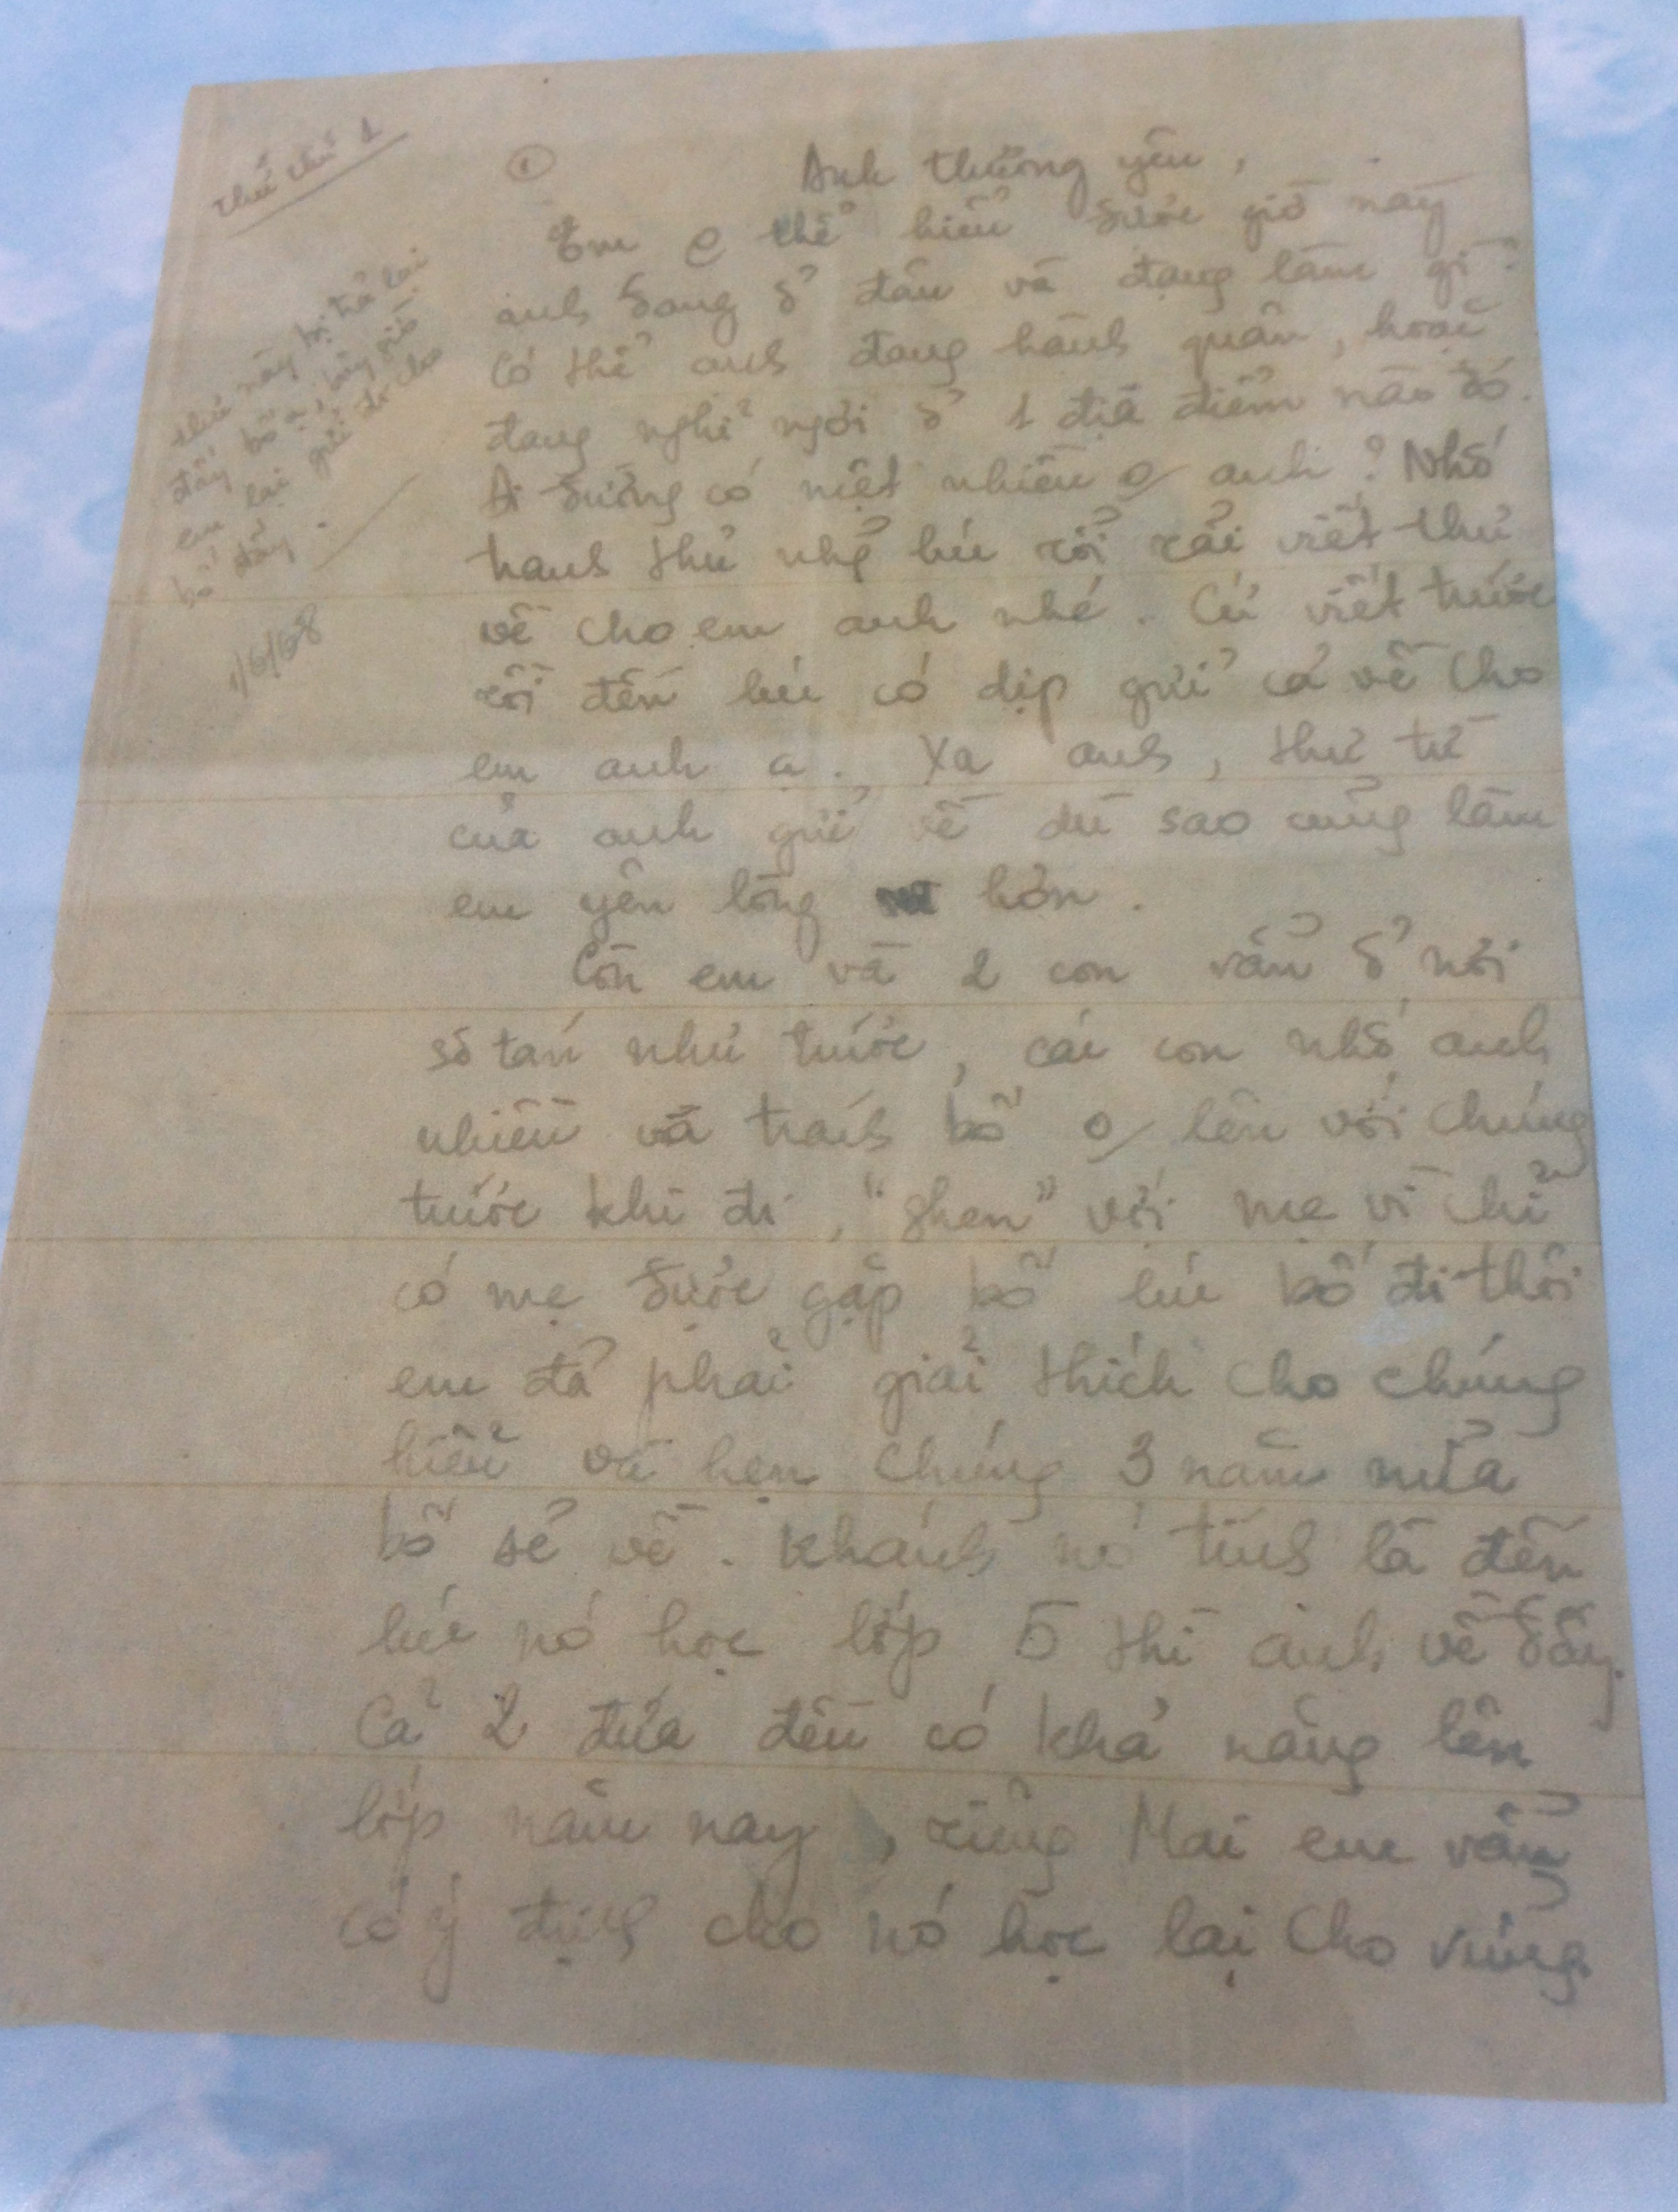 Thư thứ 1
①
Anh thương yêu,
Em o thể hiểu được giờ này
anh đang ở đâu và đang làm gì?
Có thể anh đang hành quân, hoặc
đang nghỉ ngơi ở 1 địa điểm nào đó.
Đi đường có mệt nhiều o anh? Nhớ
tranh thủ nhg lúc rỗi rãi viết thư
về cho em anh nhé. Cứ viết trước
rồi đến lúc có dịp gửi cả về cho
em anh ạ. Xa anh, thư từ
của anh gửi về dù sao cũng làm
em yên lòng hơn.
Còn em và 2 con vẫn ở nơi
sơ tán như trước, các con nhớ anh
nhiều và trách bố o lên với chúng
trước khi đi, "ghen" với mẹ vì chỉ
có mẹ được gặp bố lúc bố đi thôi
em đã phải giải thích cho chúng
hiểu và hẹn chúng 3 năm nữa
bố sẽ về. Khánh nó tính là đến
lúc nó học lớp 5 thì anh về đấy.
Cả 2 đứa đều có khả năng lên
lớp năm nay, riêng Mai em vẫn
có ý định cho nó học lại cho vững.
thư này bị trả lại
đấy bố ạ, bây giờ
em lại gửi đi cho
bố đây.
1/6/68